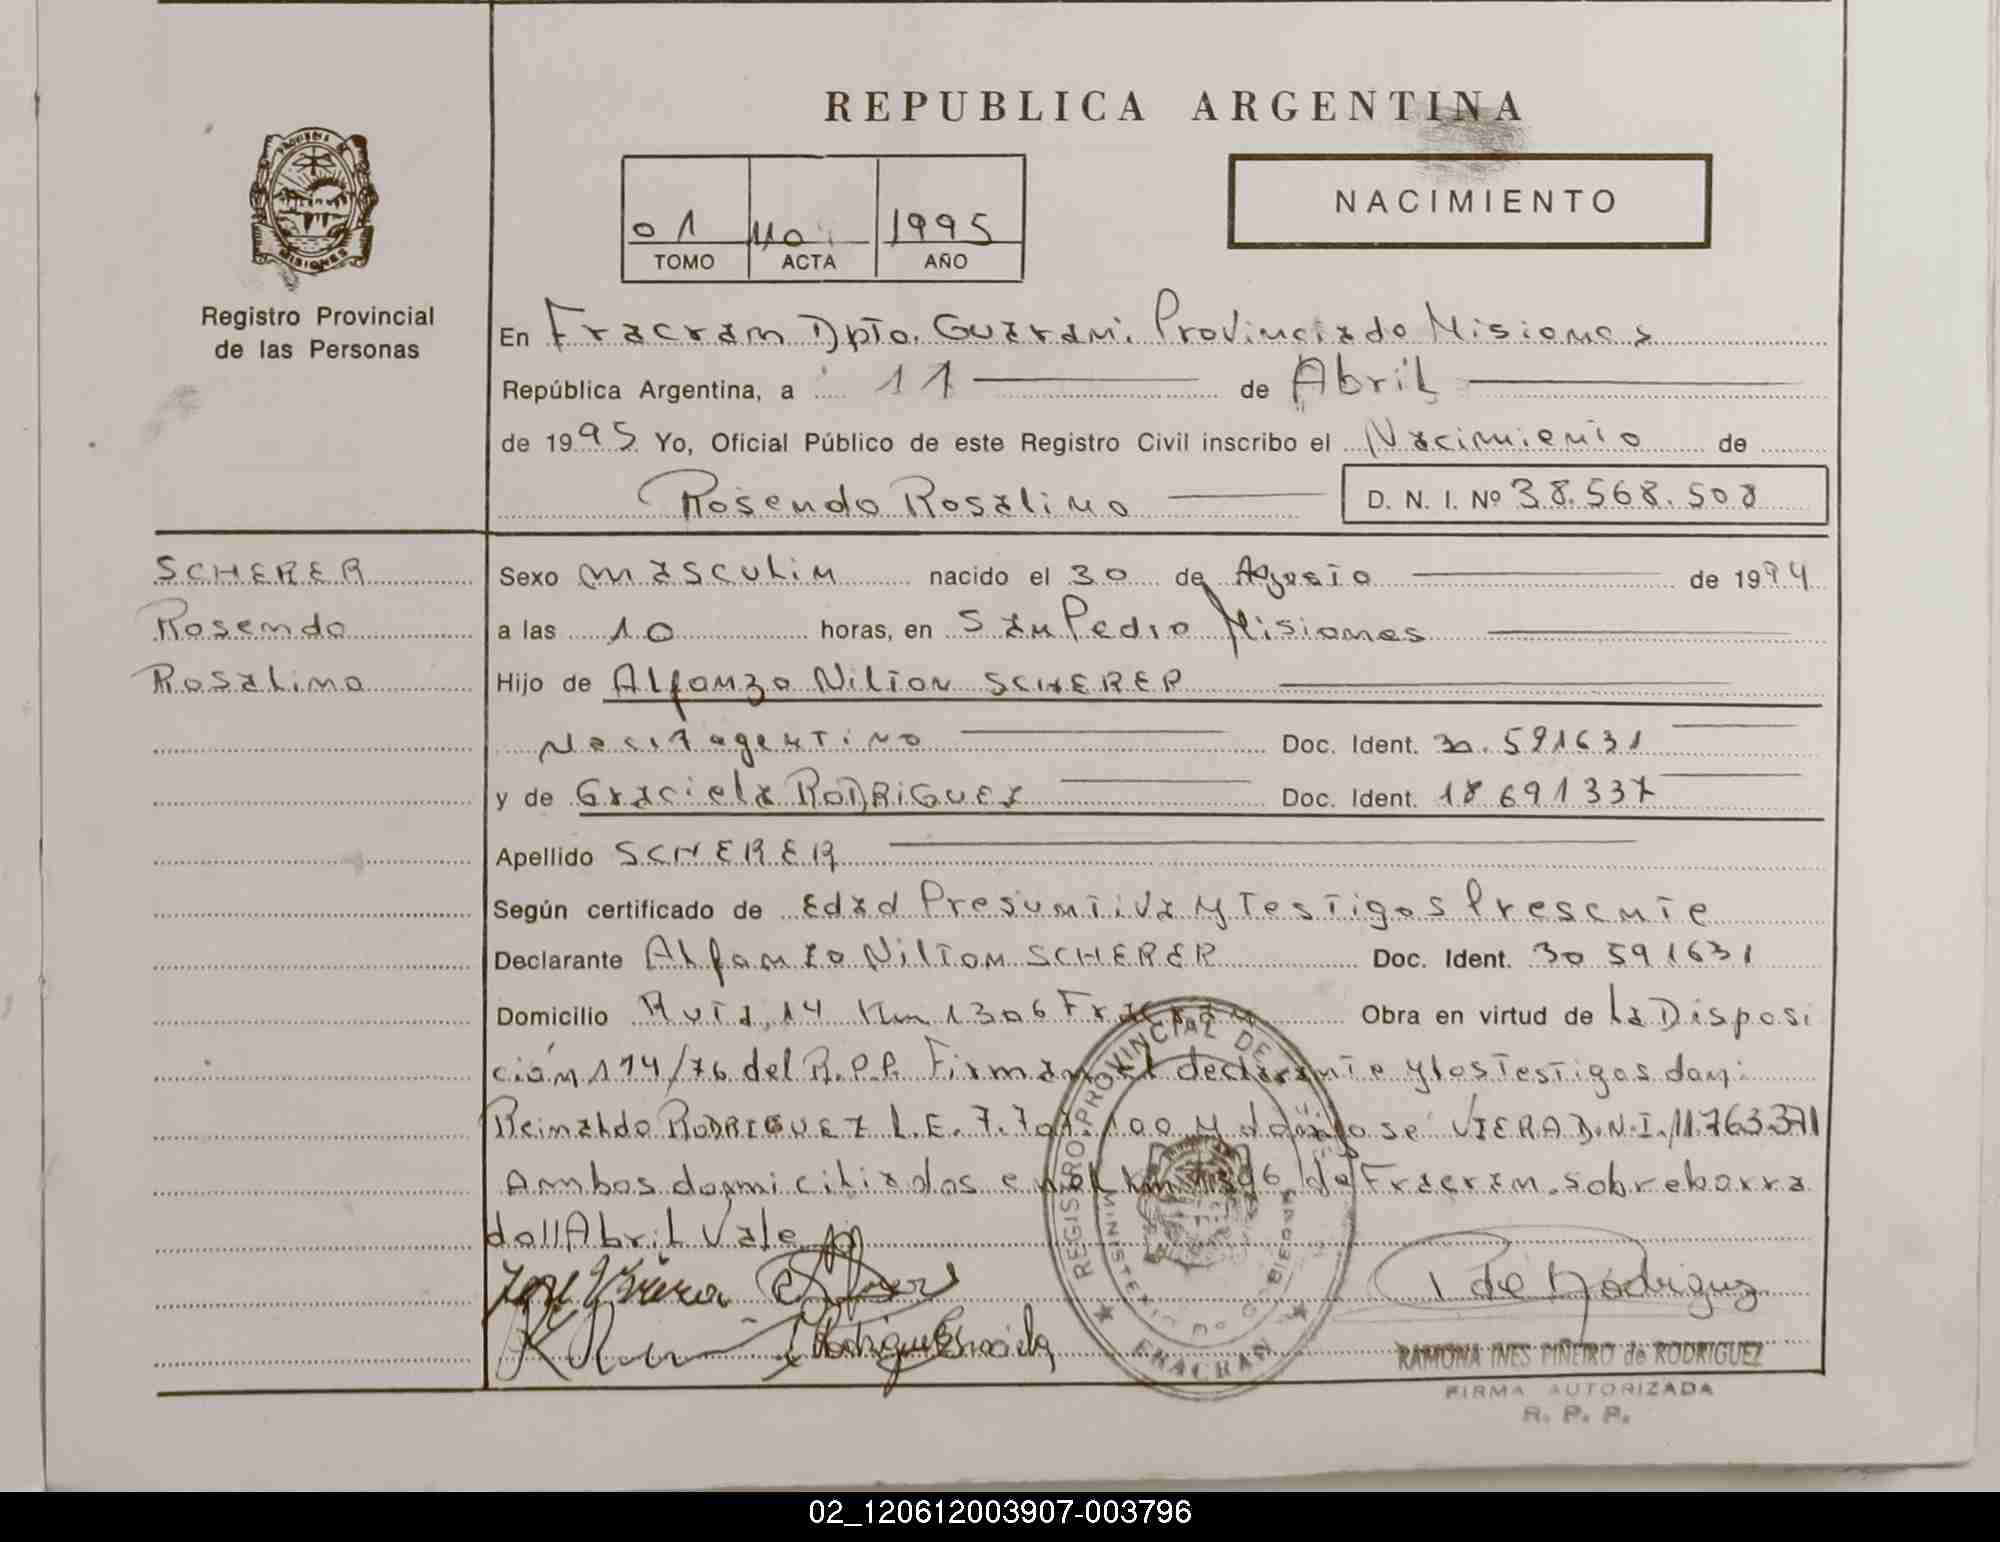 REPUBLICA ARGENTINA
NACIMIENTO
01 110 1995
TOMO ACTA AÑO
PROVINCIA DE
MISIONES
Registro Provincial
de las Personas
En Fracram Dpto. Guarani. Provincia de Misiones
República Argentina, a 11 de Abril
de 1995 Yo, Oficial Público de este Registro Civil inscribo el Nacimiento de
Rosendo Rosalino D. N. I. Nº 38.568.508
SCHERER
Rosendo
Rosalino
Sexo masculin nacido el 30 de Agosto de 1994
a las 10 horas, en San Pedro Misiones
Hijo de Alfonzo Nilton SCHERER
Doc. Ident. 30.591631
y de Graciela RODRIGUEZ Doc. Ident. 18691337
Apellido SCHERER
Según certificado de Edad Presuntiva y Testigos Presente
Declarante Alfonzo Nilton SCHERER Doc. Ident. 30 591631
Domicilio Ruta 14 Km 1306 Fracran Obra en virtud de la Disposi
ción 174/76 del R.P.P. Firman el declarante y los Testigos don:
Reinaldo RODRIGUEZ L.E. 7.707.100 y don José VIERA D.N.I. 11.763.371
Ambos domiciliados en el Km 1306 de Fracran. sobreborra
do 11 Abril Vale
José Viera
Rodriguez Graciela
P de Rodriguez
REGISTRO PROVINCIAL DE
MINISTERIO DE GOBIERNO
FRACRAN
RAMONA INES PIÑEIRO de RODRIGUEZ
FIRMA AUTORIZADA
R. P. P.
02_120612003907-003796